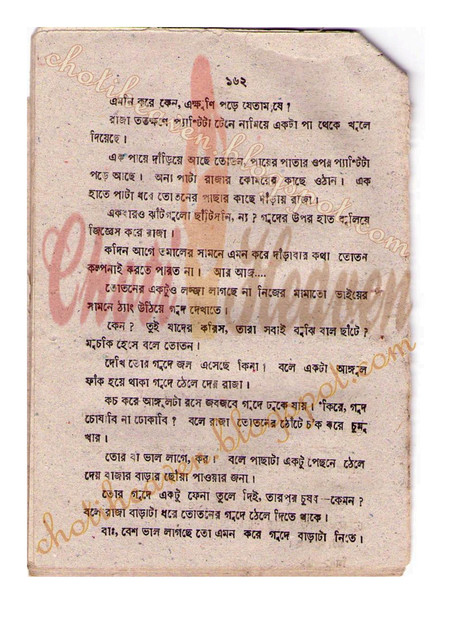 ১৬২
এমনি করে কেন, এক্ষুণি পড়ে যেতাম যে ?
রাজা ততক্ষণে প্যান্টিটা টেনে নামিয়ে একটা পা থেকে খুলে
দিয়েছে ।
এক পায়ে দাঁড়িয়ে আছে তোতন, পায়ের পাতার ওপর প্যান্টিটা
পড়ে আছে । অন্য পাটা রাজার কোমরের কাছে ওঠান । এক
হাতে পাটা ধরে তোতনের পাছার কাছে দাঁড়ায় রাজা ।
একবারও ঝাঁটগুলো ছাঁটিসনি, না ? গুদের উপর হাত বুলিয়ে
জিজ্ঞেস করে রাজা ।
কদিন আগে তমালের সামনে এমন করে দাঁড়াবার কথা তোতন
কল্পনাই করতে পারত না । আর আজ....
তোতনের একটুও লজ্জা লাগছে না নিজের মামাতো ভাইয়ের
সামনে ঠ্যাং উঠিয়ে গুদ দেখাতে ।
কেন ? তুই যাদের করিস, তারা সবাই বুঝি বাল ছাঁটে ?
মুচকি হেসে বলে তোতন ।
দেখি তোর গুদে জল এসেছে কিনা । বলে একটা আঙ্গুল
ফাঁক হয়ে থাকা গুদে ঠেলে দেয় রাজা ।
কচ করে আঙ্গুলটা রসে জবজবে গুদে ঢুকে যায় । কিরে, গুদ
চোষাবি না ঢোকাবি ? বলে রাজা তোতনের ঠোঁটে চকি করে চুমু
খায় ।
তোর যা ভাল লাগে, কর । বলে পাছাটা একটু পেছনে ঠেলে
দেয় রাজার বাড়ার ছোঁয়া পাওয়ার জন্য ।
তোর গুদে একটু ফেনা তুলে দিই, তারপর চুষব —কেমন ?
বলে রাজা বাড়াটা ধরে তোতনের গুদে ঠেলে দিতে থাকে ।
বাঃ, বেশ ভাল লাগছে তো এমন করে গুদে বাড়াটা নিতে ।
Choti Heaven
chotiheaven.blogspot.com
chotiheaven.blogspot.com